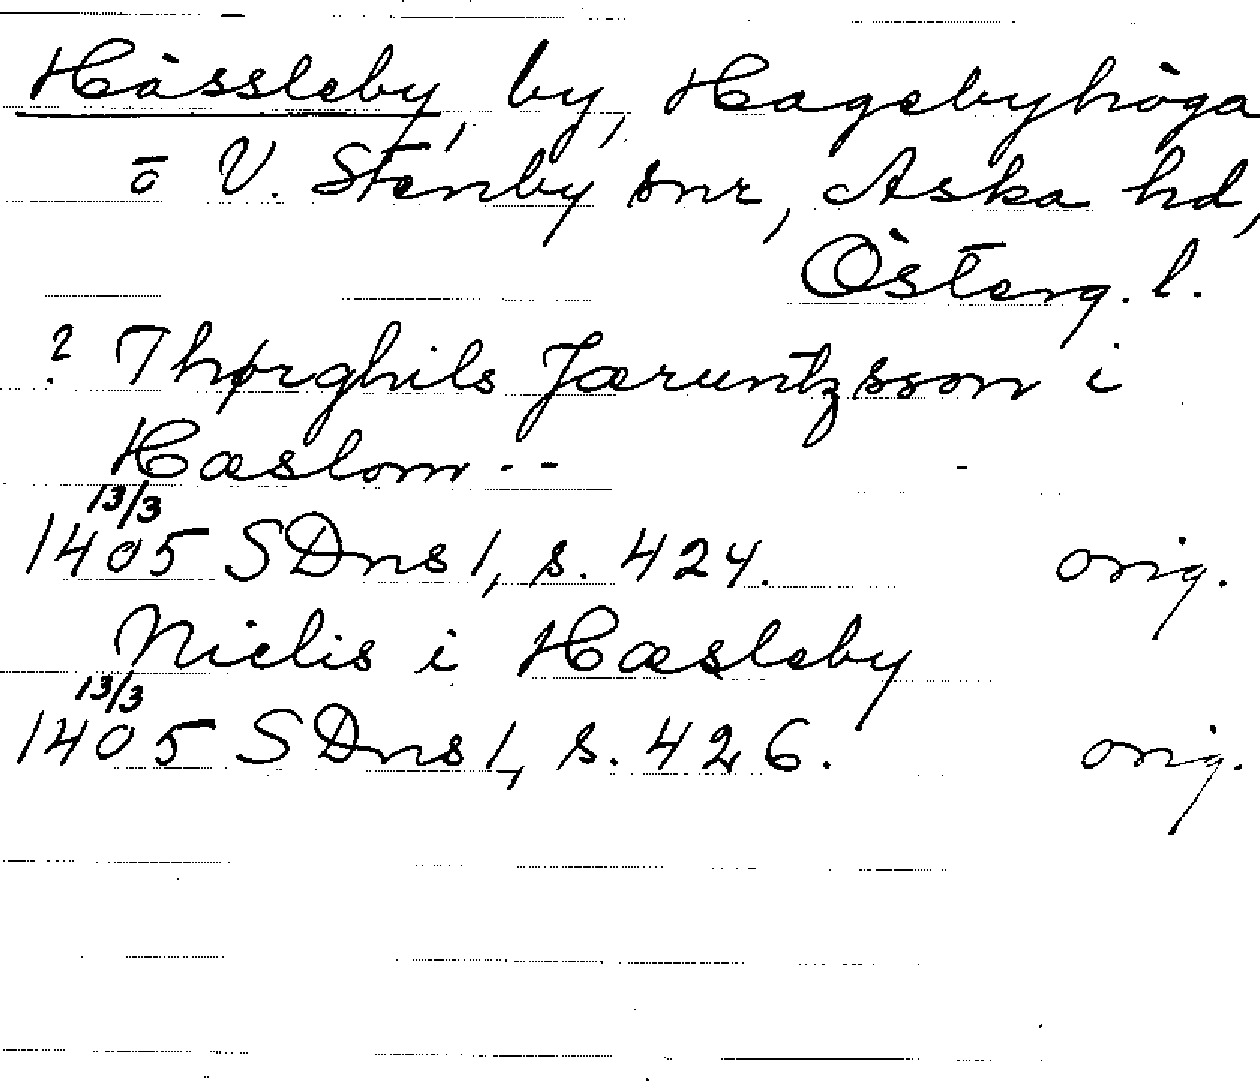 Hässleby, by, Hagebyhöga
o V. Stenby snr, Aska hd,
Österg. l.
? Thørghils Jæruntzsson i
Hæslom - - -
13/3
1405 SDns 1, s. 424. orig.
Nielis i Hæsleby
13/3
1405 SDns 1, s. 426. orig.